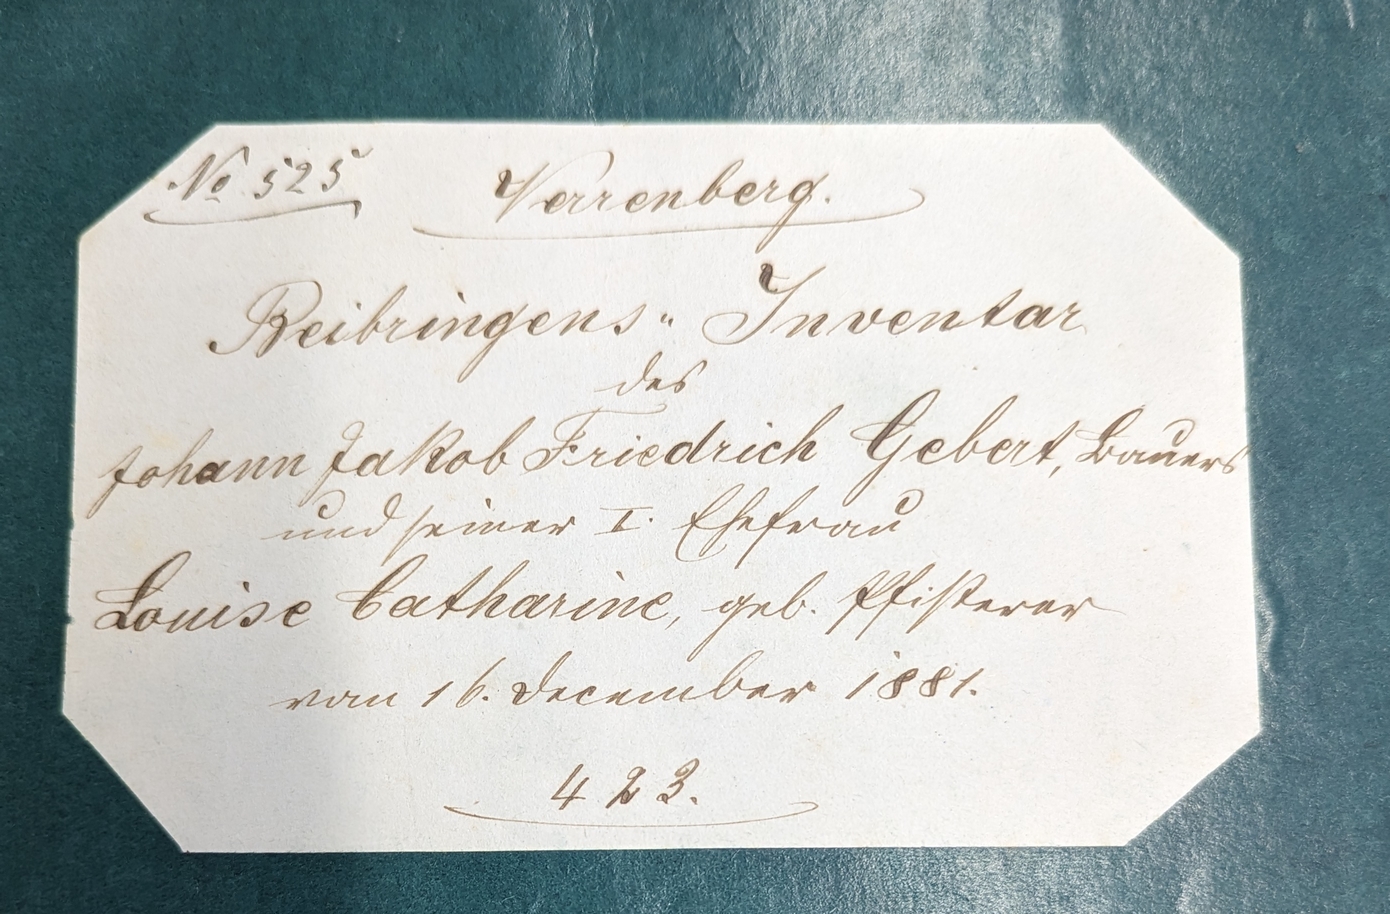 No 525 Verrenberg.
Beibringens- Inventar
des
Johann Jakob Friedrich Gebert, Bauers
und seiner I. Ehefrau
Louise Catharine, geb. Pfisterer
vom 16. December 1881.
423.